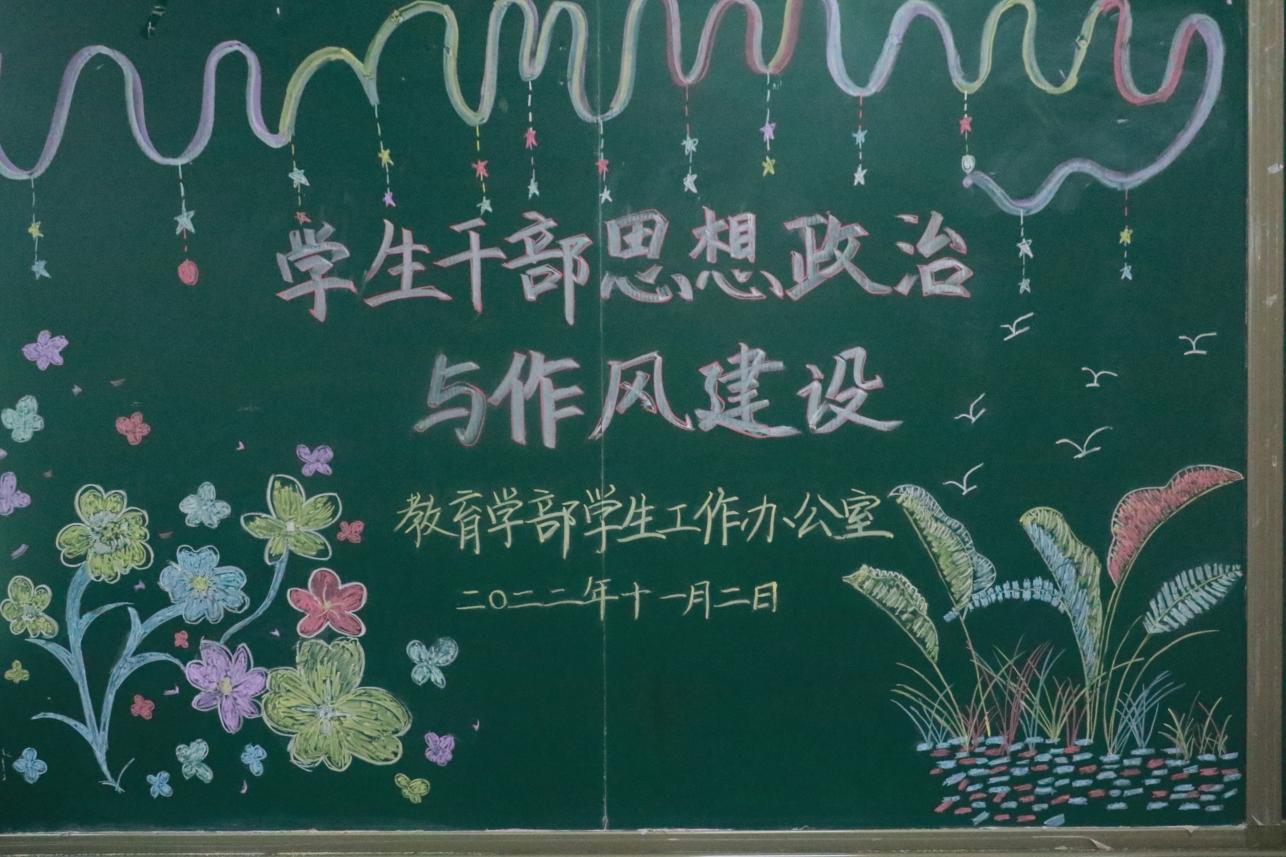 学生干部思想政治
与作风建设
教育学部学生工作办公室
二〇二二年十一月二日